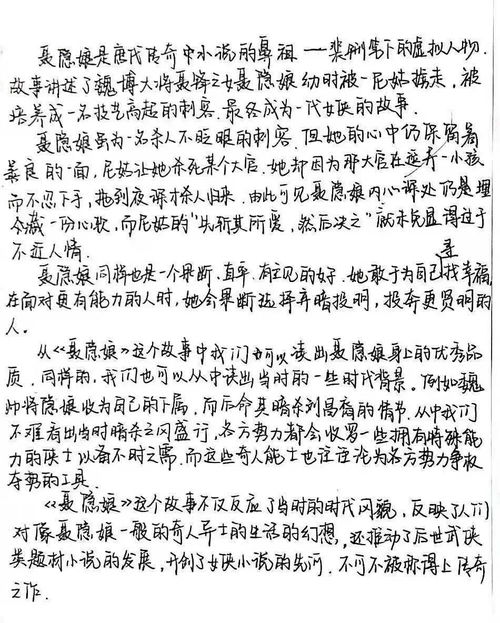 聂隐娘是唐代传奇中小说的鼻祖——裴铏笔下的虚拟人物.
故事讲述了魏博大将聂锋之女聂隐娘幼时被一尼姑拐走，被
培养成一名技艺高超的刺客.最终成为一代女侠的故事.
聂隐娘虽为一名杀人不眨眼的刺客.但她的心中仍保留着
善良的一面，尼姑让她杀死某个大官.她却因为那大官在逗弄一小孩
而不忍下手，拖到夜深才杀人归来.由此可见聂隐娘内心深处仍是埋
今藏一份心软，而尼姑的"先斩其所爱，然后决之"就未免显得过于
不近人情.
聂隐娘同样也是一个果断、直率、有主见的好.她敢于为自己找寻幸福，
在面对更有能力的人时，她会果断选择弃暗投明，投奔更贤明的
人.
从《聂隐娘》这个故事中我们可以读出聂隐娘身上的优秀品
质.同样的，我们也可以从中读出当时的一些时代背景.例如魏
帅将隐娘收为自己的下属，而后命其暗杀刘昌裔的情节.从中我们
不难看出当时暗杀之风盛行，各方势力都会收罗一些拥有特殊能
力的侠士以备不时之需.而这些奇人能士也往往沦为各方势力争权
夺势的工具.
《聂隐娘》这个故事不仅反应了当时的时代风貌，反映了人们
对像聂隐娘一般的奇人异士的生活的幻想，还推动了后世武侠
类题材小说的发展，开创了女侠小说的先河.不可不被称得上传奇
之作.